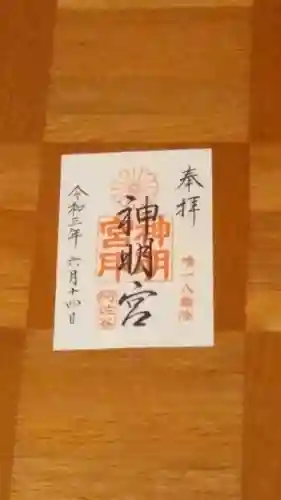 奉拝
神明宮
神明
宮
阿佐谷
令和三年 六月十四日